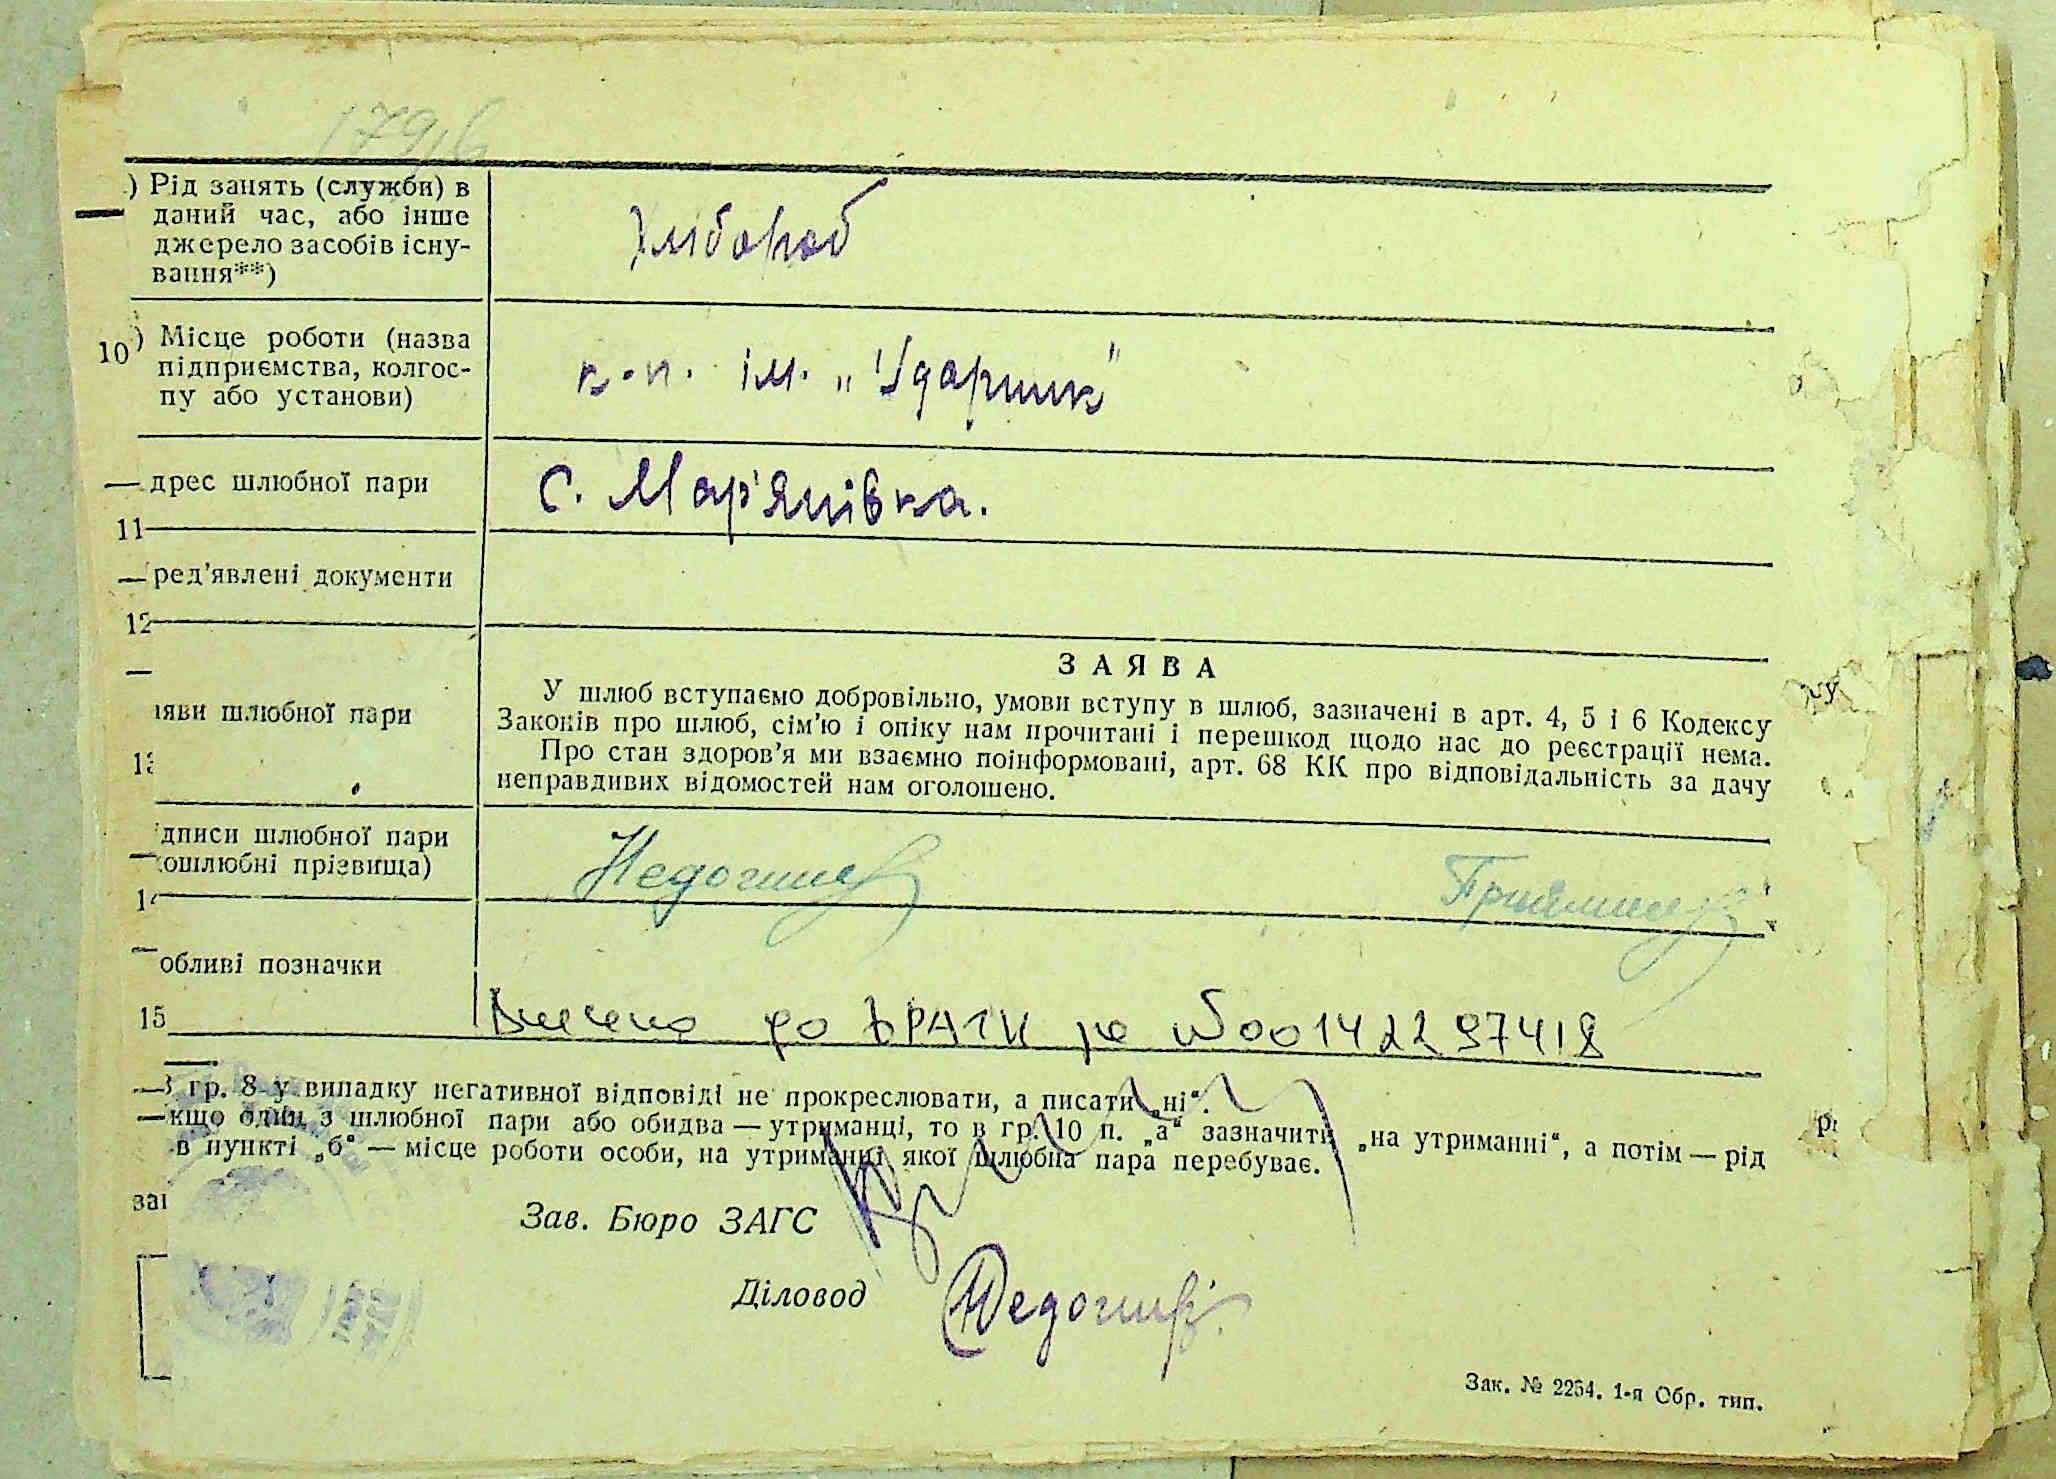 179,6
) Рід занять (служби) в
даний час, або інше
джерело засобів існу-
вання**)
Хлібороб
10) Місце роботи (назва
підприємства, колгос-
пу або установи)
к-п. ім. „Ударник"
дрес шлюбної пари
11
С. Мар'янівка.
ред'явлені документи
12
яви шлюбної пари
13
ЗАЯВА
У шлюб вступаємо добровільно, умови вступу в шлюб, зазначені в арт. 4, 5 і 6 Кодексу
Законів про шлюб, сім'ю і опіку нам прочитані і перешкод щодо нас до реєстрації нема.
Про стан здоров'я ми взаємно поінформовані, арт. 68 КК про відповідальність за дачу
неправдивих відомостей нам оголошено.
дписи шлюбної пари
ошлюбні прізвища)
14
обливі позначки
15
Внесено до ДРАЦС № 00142297418
гр. 8 у випадку негативної відповіді не прокреслювати, а писати „ні“.
кщо один з шлюбної пари або обидва — утриманці, то в гр. 10 п. „а“ зазначити „на утриманні“, а потім — рід
в пункті „б“ — місце роботи особи, на утриманні якої шлюбна пара перебуває.
зан
Зав. Бюро ЗАГС
Діловод
Зак. № 2264. 1-я Обр. тип.